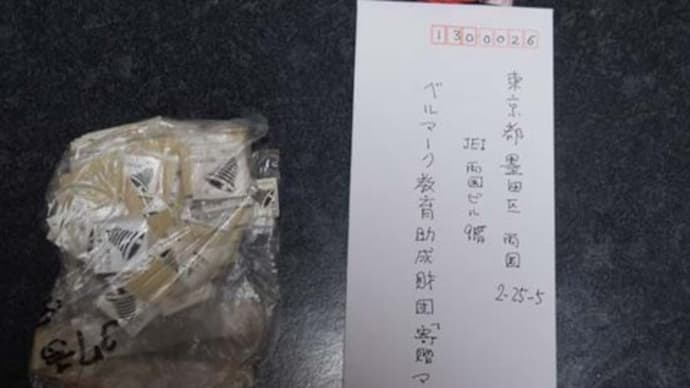 1300026
東京都墨田区両国
2-25-5
JEI両国ビル9階
ベルマーク教育助成財団「寄贈マ